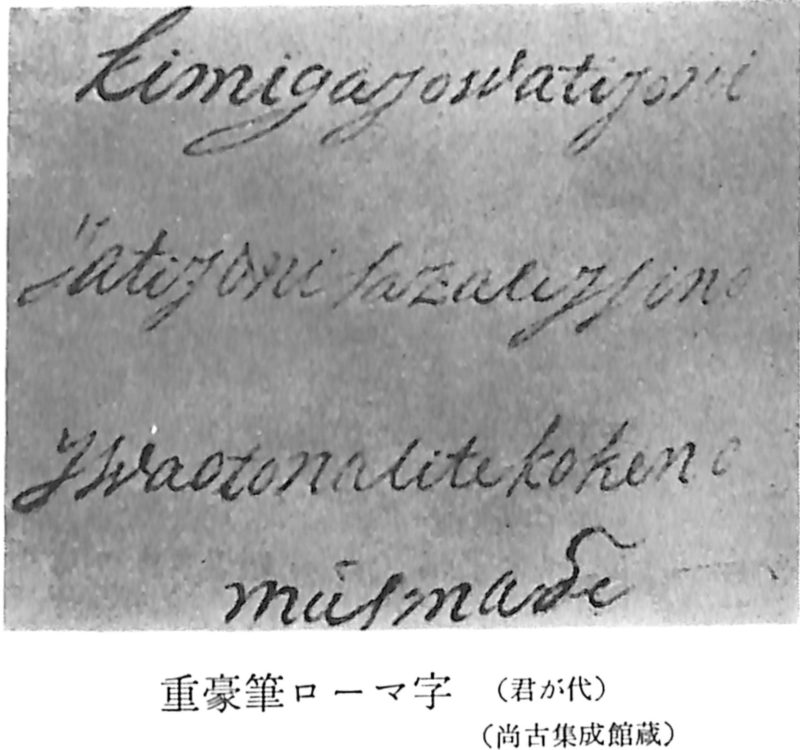 kimigayowatiyoni
jatiyoni sazaleysino
ywaotonalite kokeno
müsmade
重豪筆ローマ字 （君が代）
（尚古集成館蔵）